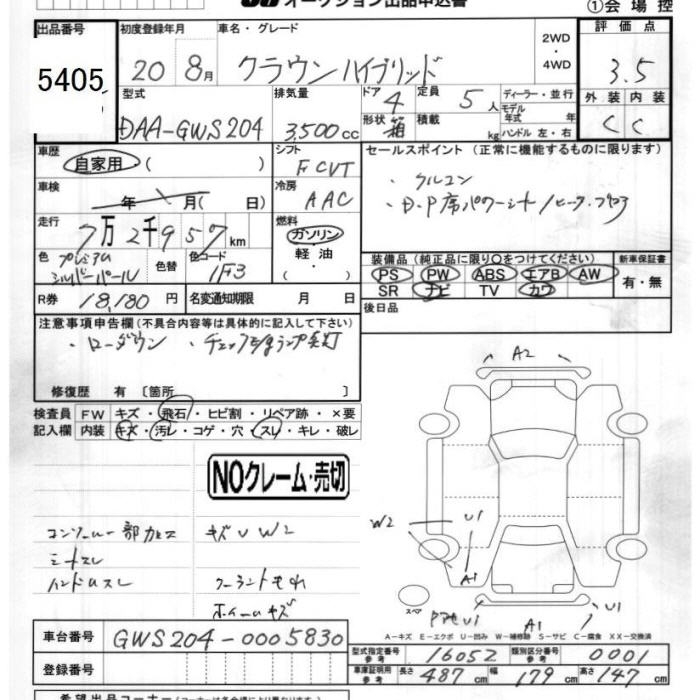 オークション出品申込書
①会場控
出品番号
5405
初度登録年月
20 8月
車名・グレード
クラウンハイブリッド
2WD
・
4WD
評価点
3.5
外装 内装
C C
型式
DAA-GWS204
排気量
3,500cc
ドア 4
形状 箱
定員 5人
積載 kg
ディーラー・並行
モデル
年式 年
ハンドル 左・右
車歴
自家用 ( )
シフト
FCVT
車検
年 月( 日)
冷房
AAC
走行
7万2千957km
燃料
ガソリン・
軽油・
( )
色
プレミアム
シルバーパール
色替
色コード
1F3
R券 18,180円
名変通知期限 月 日
セールスポイント (正常に機能するものに限ります)
・クルコン
・D.P席パワーシート/
装備品 (純正品に限り○をつけてください)
PS PW ABS エアB AW
SR ナビ TV カワ
新車保証書
有・無
後日品
注意事項申告欄 (不具合内容等は具体的に記入して下さい)
・ローダウン ・チェックランプ点灯
修復歴 有 〔箇所 〕
検査員 FW キズ・飛石・ヒビ割・リペア跡・×要
記入欄 内装 キズ・汚レ・コゲ・穴・スレ・キレ・破レ
NOクレーム・売切
コンソール一部カケ
シートスレ
ハンドルスレ
キズU W2
クーラントモレ
ホイールキズ
A2
W2
U1
A1
スペア
U1
A1
U1
A-キズ E-エクボ U-凹み W-補修跡 S-サビ C-腐食 XX-交換済
車台番号 GWS204-0005830
登録番号
型式指定番号 参考 16052
類別区分番号 参考 0001
車庫証明用 参考 長さ 487cm 幅 179cm 高さ 147cm
希望出品コーナー